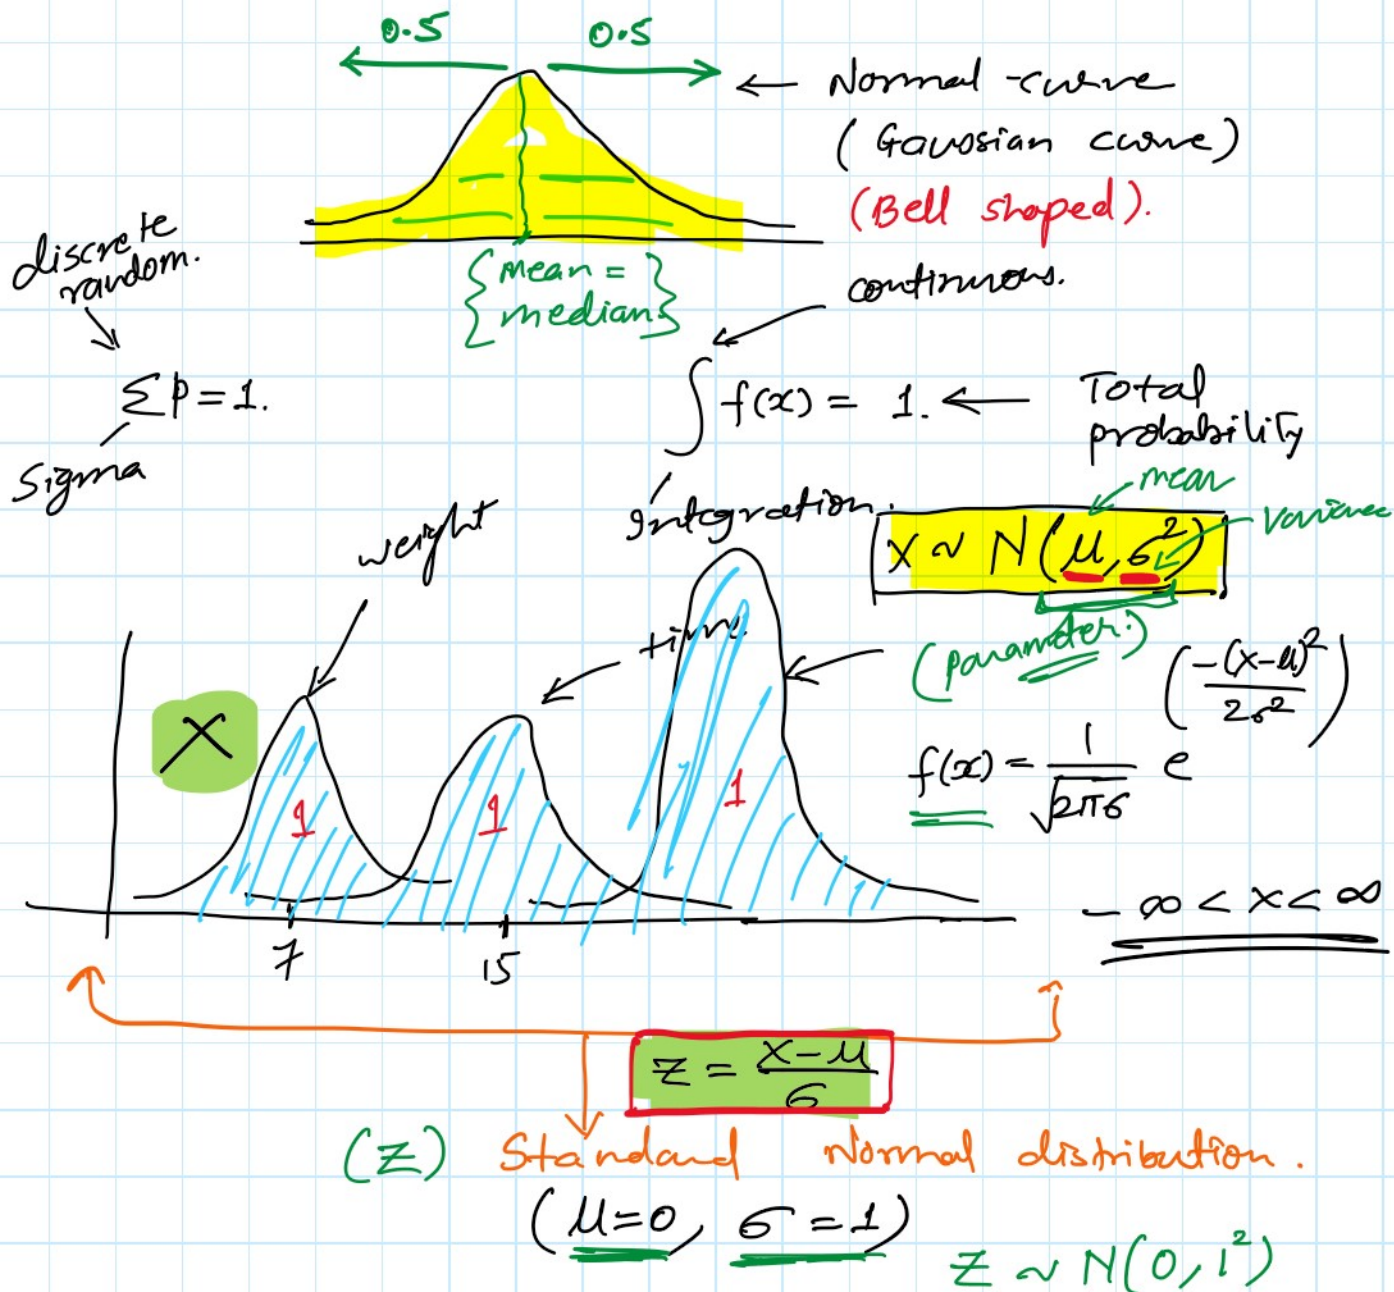 0.5 0.5
← Normal-curve
(Gausian curve)
(Bell shaped).
discrete random.
{mean = median}
continuous.
Σp = 1.
∫ f(x) = 1. ← Total probability
Sigma
Integration.
mean
variance
X ~ N(μ, σ²)
(parameter.)
weight
time
X
1 1 1
f(x) = 1/√2πσ e (-(x-μ)²/2σ²)
-∞ < x < ∞
7 15
Z = X-μ/σ
(Z) Standard Normal distribution.
(μ=0, σ=1)
Z ~ N(0, 1²)